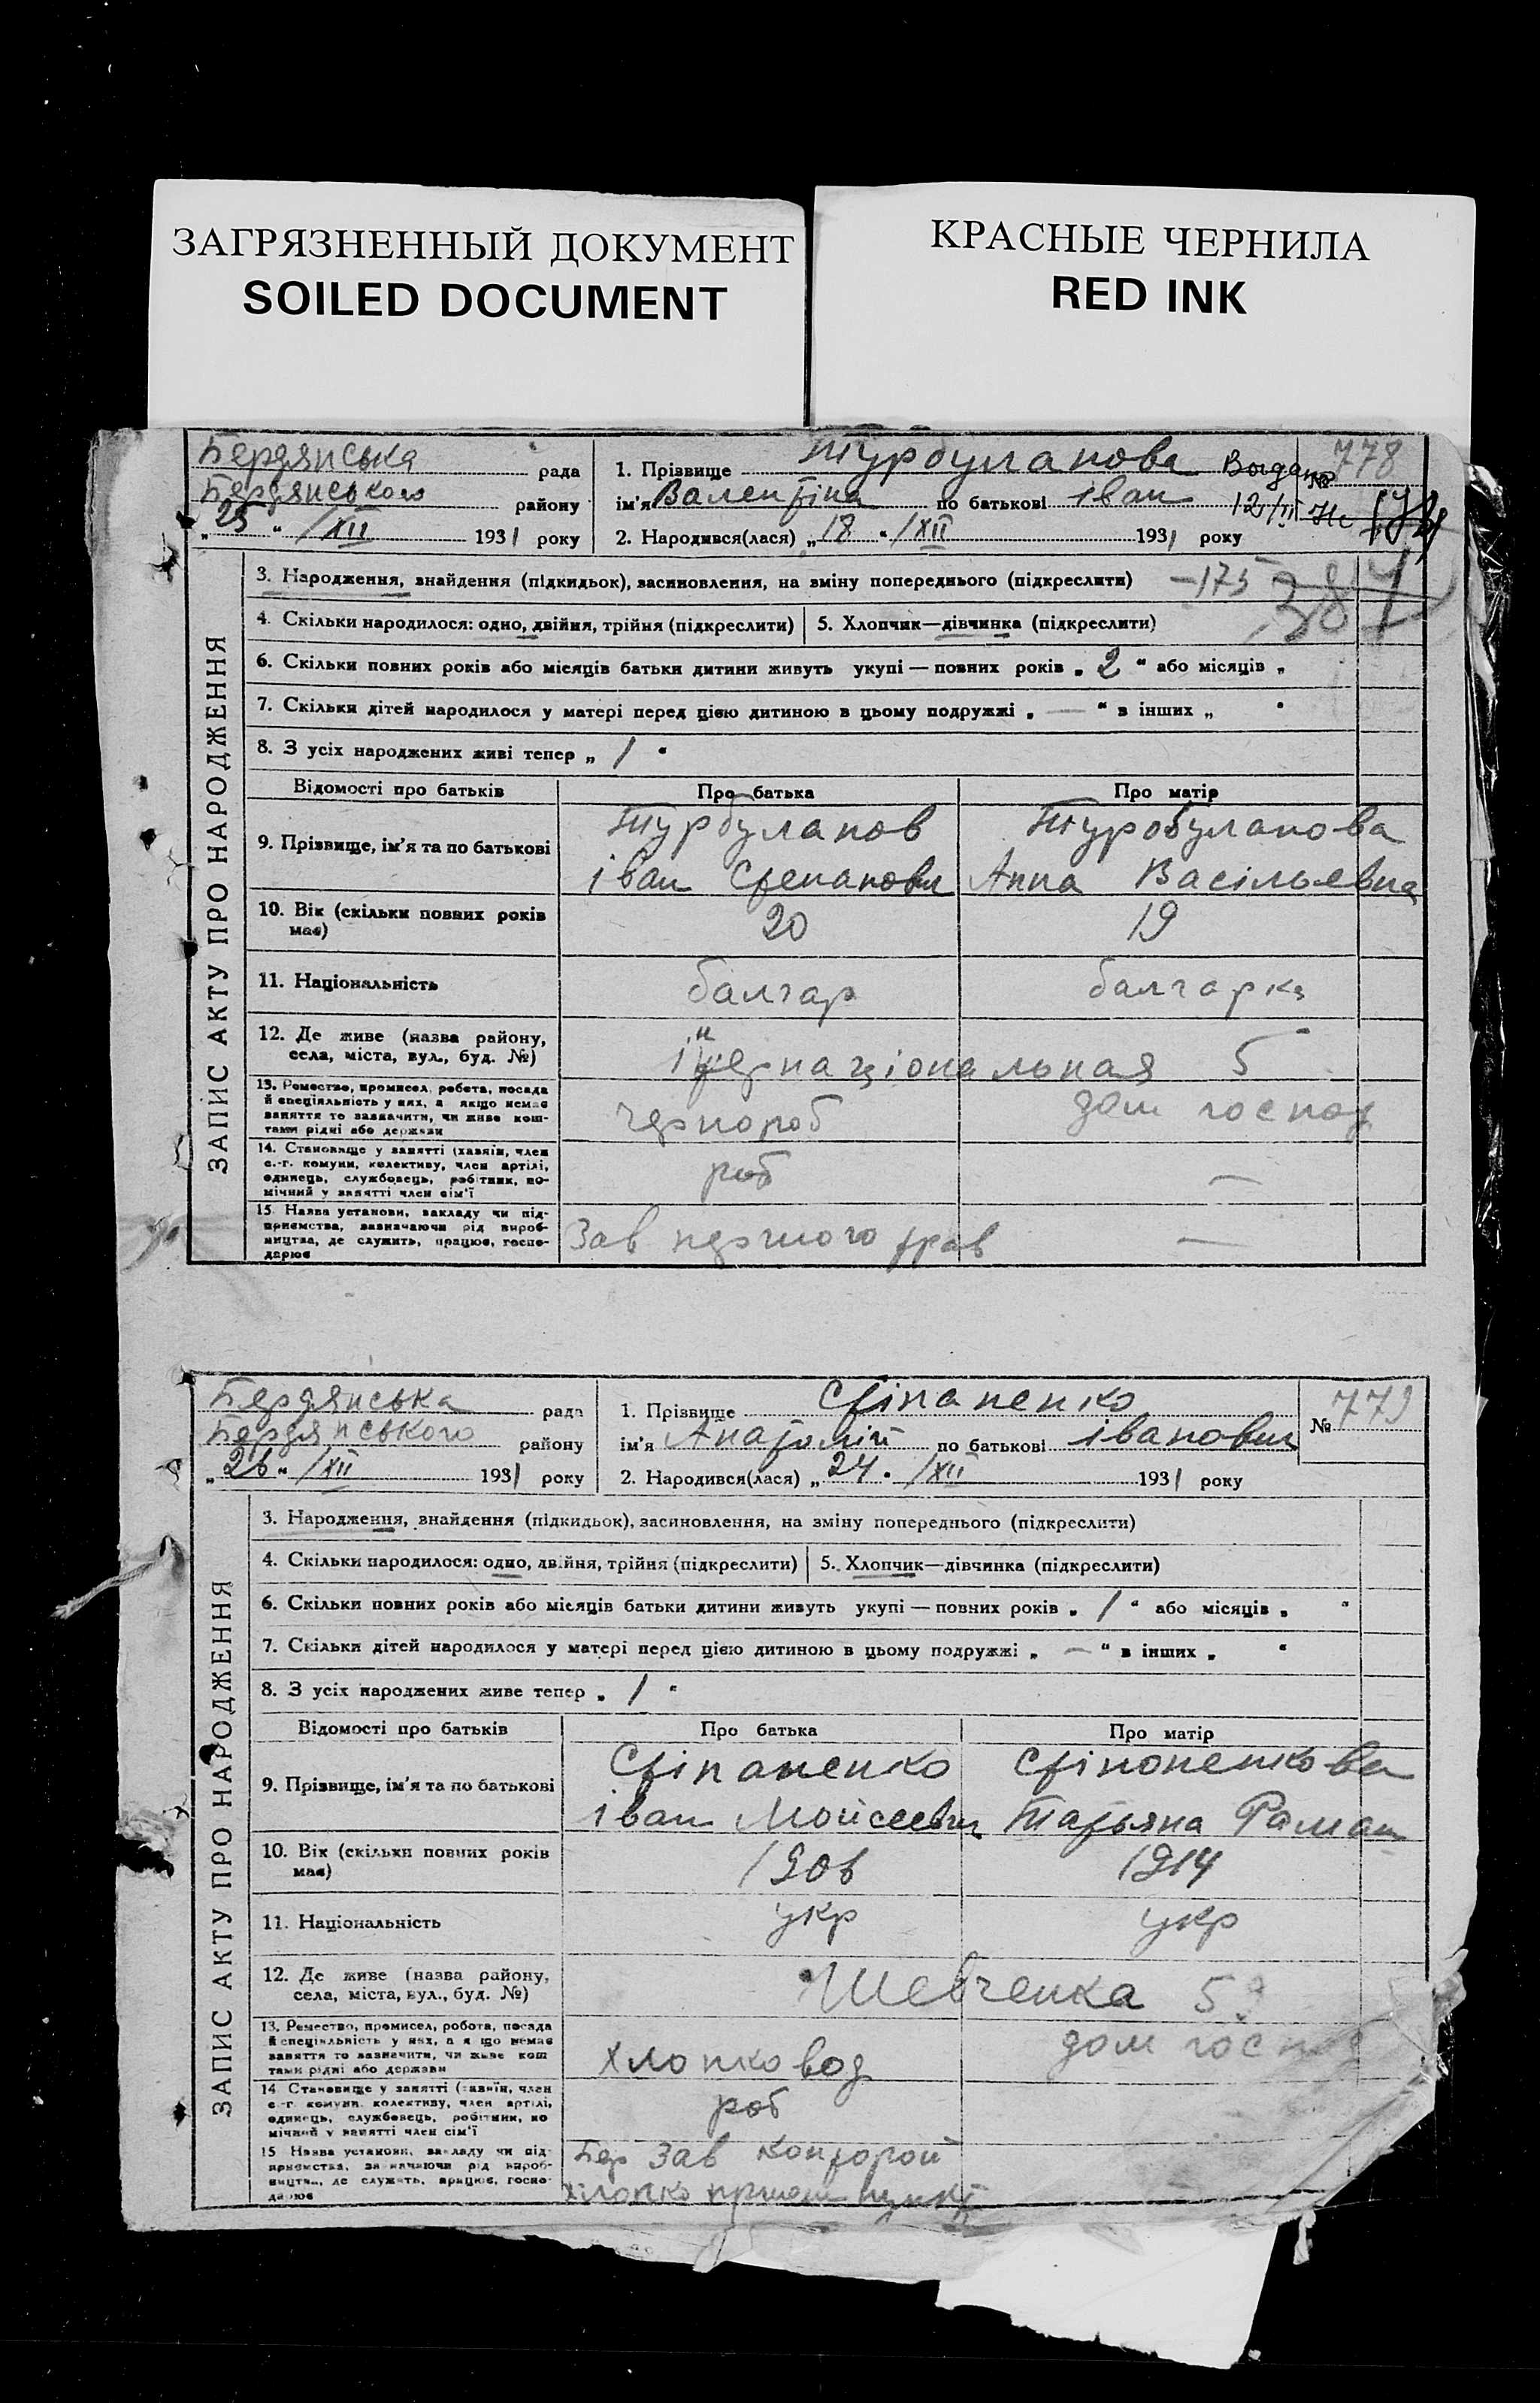 ЗАГРЯЗНЕННЫЙ ДОКУМЕНТ
SOILED DOCUMENT
КРАСНЫЕ ЧЕРНИЛА
RED INK
ЗАПИС АКТУ ПРО НАРОДЖЕННЯ
Бердянська рада
Бердянського району
„25“ /XII 1931 року
1. Прізвище Турбуланова
ім'я Валентіна по батькові іван
2. Народився(лася) „18“ /XII 1931 року
№ 778
12/II
3. Народження, знайдення (підкидьок), засиновлення, на зміну попереднього (підкреслити) –175– 387
4. Скільки народилося: одно, двійня, трійня (підкреслити) 5. Хлопчик—дівчинка (підкреслити)
6. Скільки повних років або місяців батьки дитини живуть укупі — повних років „ 2 “ або місяців „
7. Скільки дітей народилося у матері перед цією дитиною в цьому подружжі „ — “ в інших „ “
8. З усіх народжених живі тепер „ 1 “
Відомості про батьків Про батька Про матір
9. Прізвище, ім'я та по батькові Турбуланов Туробуланова
іван Степанови Анна Васільевна
10. Вік (скільки повних років має) 20 19
11. Національність балгар балгарка
12. Де живе (назва району, села, міста, вул., буд. №) інтернаціональная 5
13. Ремество, промисел, робота, посада
й спеціяльність у них, а якщо немає
заняття то зазначити, чи живе кош-
тами рідні або держави
чернороб дом господ
14. Становище у занятті (хазяїн, член
с.-г. комуни, колективу, член артілі,
одинець, службовець, робітник, по-
мічний у занятті член сім'ї
роб —
15. Назва установи, закладу чи під-
приємства, зазначаючи рід вироб-
ництва, де служить, працює, госпо-
дарює
Зав першого трав —
ЗАПИС АКТУ ПРО НАРОДЖЕННЯ
Бердянська рада
Бердянського району
„26“ /XII 1931 року
1. Прізвище Стіпаненко
ім'я Анатолій по батькові іванович
2. Народився(лася) „24“ /XII 1931 року
№ 779
3. Народження, знайдення (підкидьок), засиновлення, на зміну попереднього (підкреслити)
4. Скільки народилося: одно, двійня, трійня (підкреслити) 5. Хлопчик—дівчинка (підкреслити)
6. Скільки повних років або місяців батьки дитини живуть укупі — повних років „ 1 “ або місяців „ “
7. Скільки дітей народилося у матері перед цією дитиною в цьому подружжі „ — “ в інших „ “
8. З усіх народжених живе тепер „ 1 “
Відомості про батьків Про батька Про матір
9. Прізвище, ім'я та по батькові Стіпаненко Стіпоненкова
іван Мойсеевич Татьяна Раман
10. Вік (скільки повних років має) 1906 1914
11. Національність укр укр
12. Де живе (назва району, села, міста, вул., буд. №) Шевченка 59
13. Ремество, промисел, робота, посада
й спеціяльність у них, а якщо немає
заняття то зазначити, чи живе кош
тами рідні або держави
хлопковод дом господ
14. Становище у занятті (хазяїн, член
с.-г. комуни, колективу, член артілі,
одинець, службовець, робітник, по
мічний у занятті член сім'ї
роб
15. Назва установи, закладу чи під-
приємства, зазначаючи рід вироб-
ництва, де служить, працює, госпо-
дарює
Бер Зав конторой
хлопко прием пункт